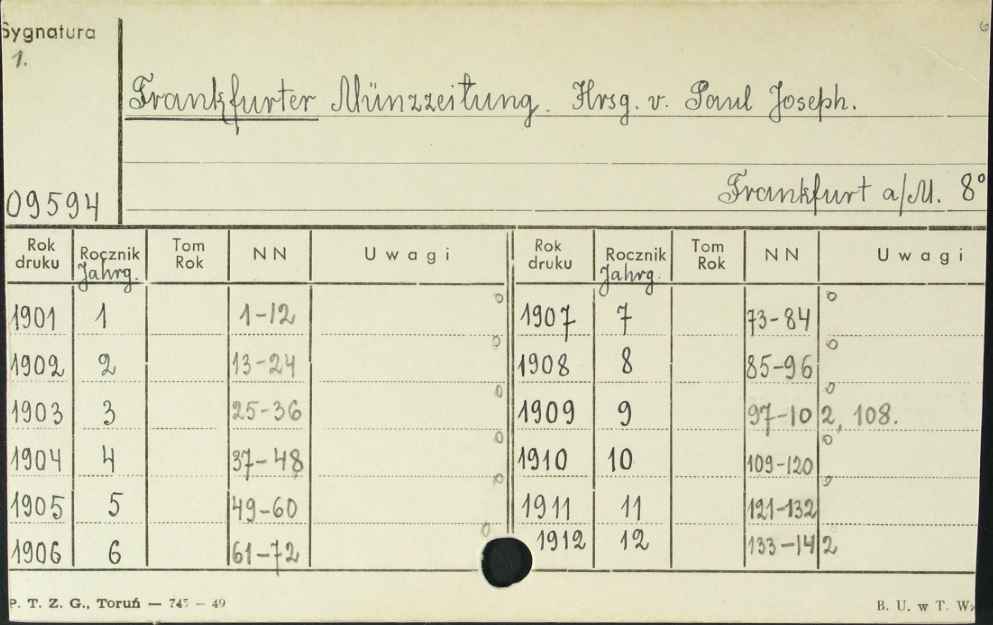 Sygnatura
1.
Frankfurter Münzzeitung. Hrsg. v. Paul Joseph.
09594
Frankfurt a/M. 8°
Rok druku Rocznik Jahrg. Tom Rok NN Uwagi Rok druku Rocznik Jahrg. Tom Rok NN Uwagi
1901 1 1-12 1907 7 73-84
1902 2 13-24 1908 8 85-96
1903 3 25-36 1909 9 97-102, 108.
1904 4 37-48 1910 10 109-120
1905 5 49-60 1911 11 121-132
1906 6 61-72 1912 12 133-142
P. T. Z. G., Toruń — 745 — 49 B. U. w T. W